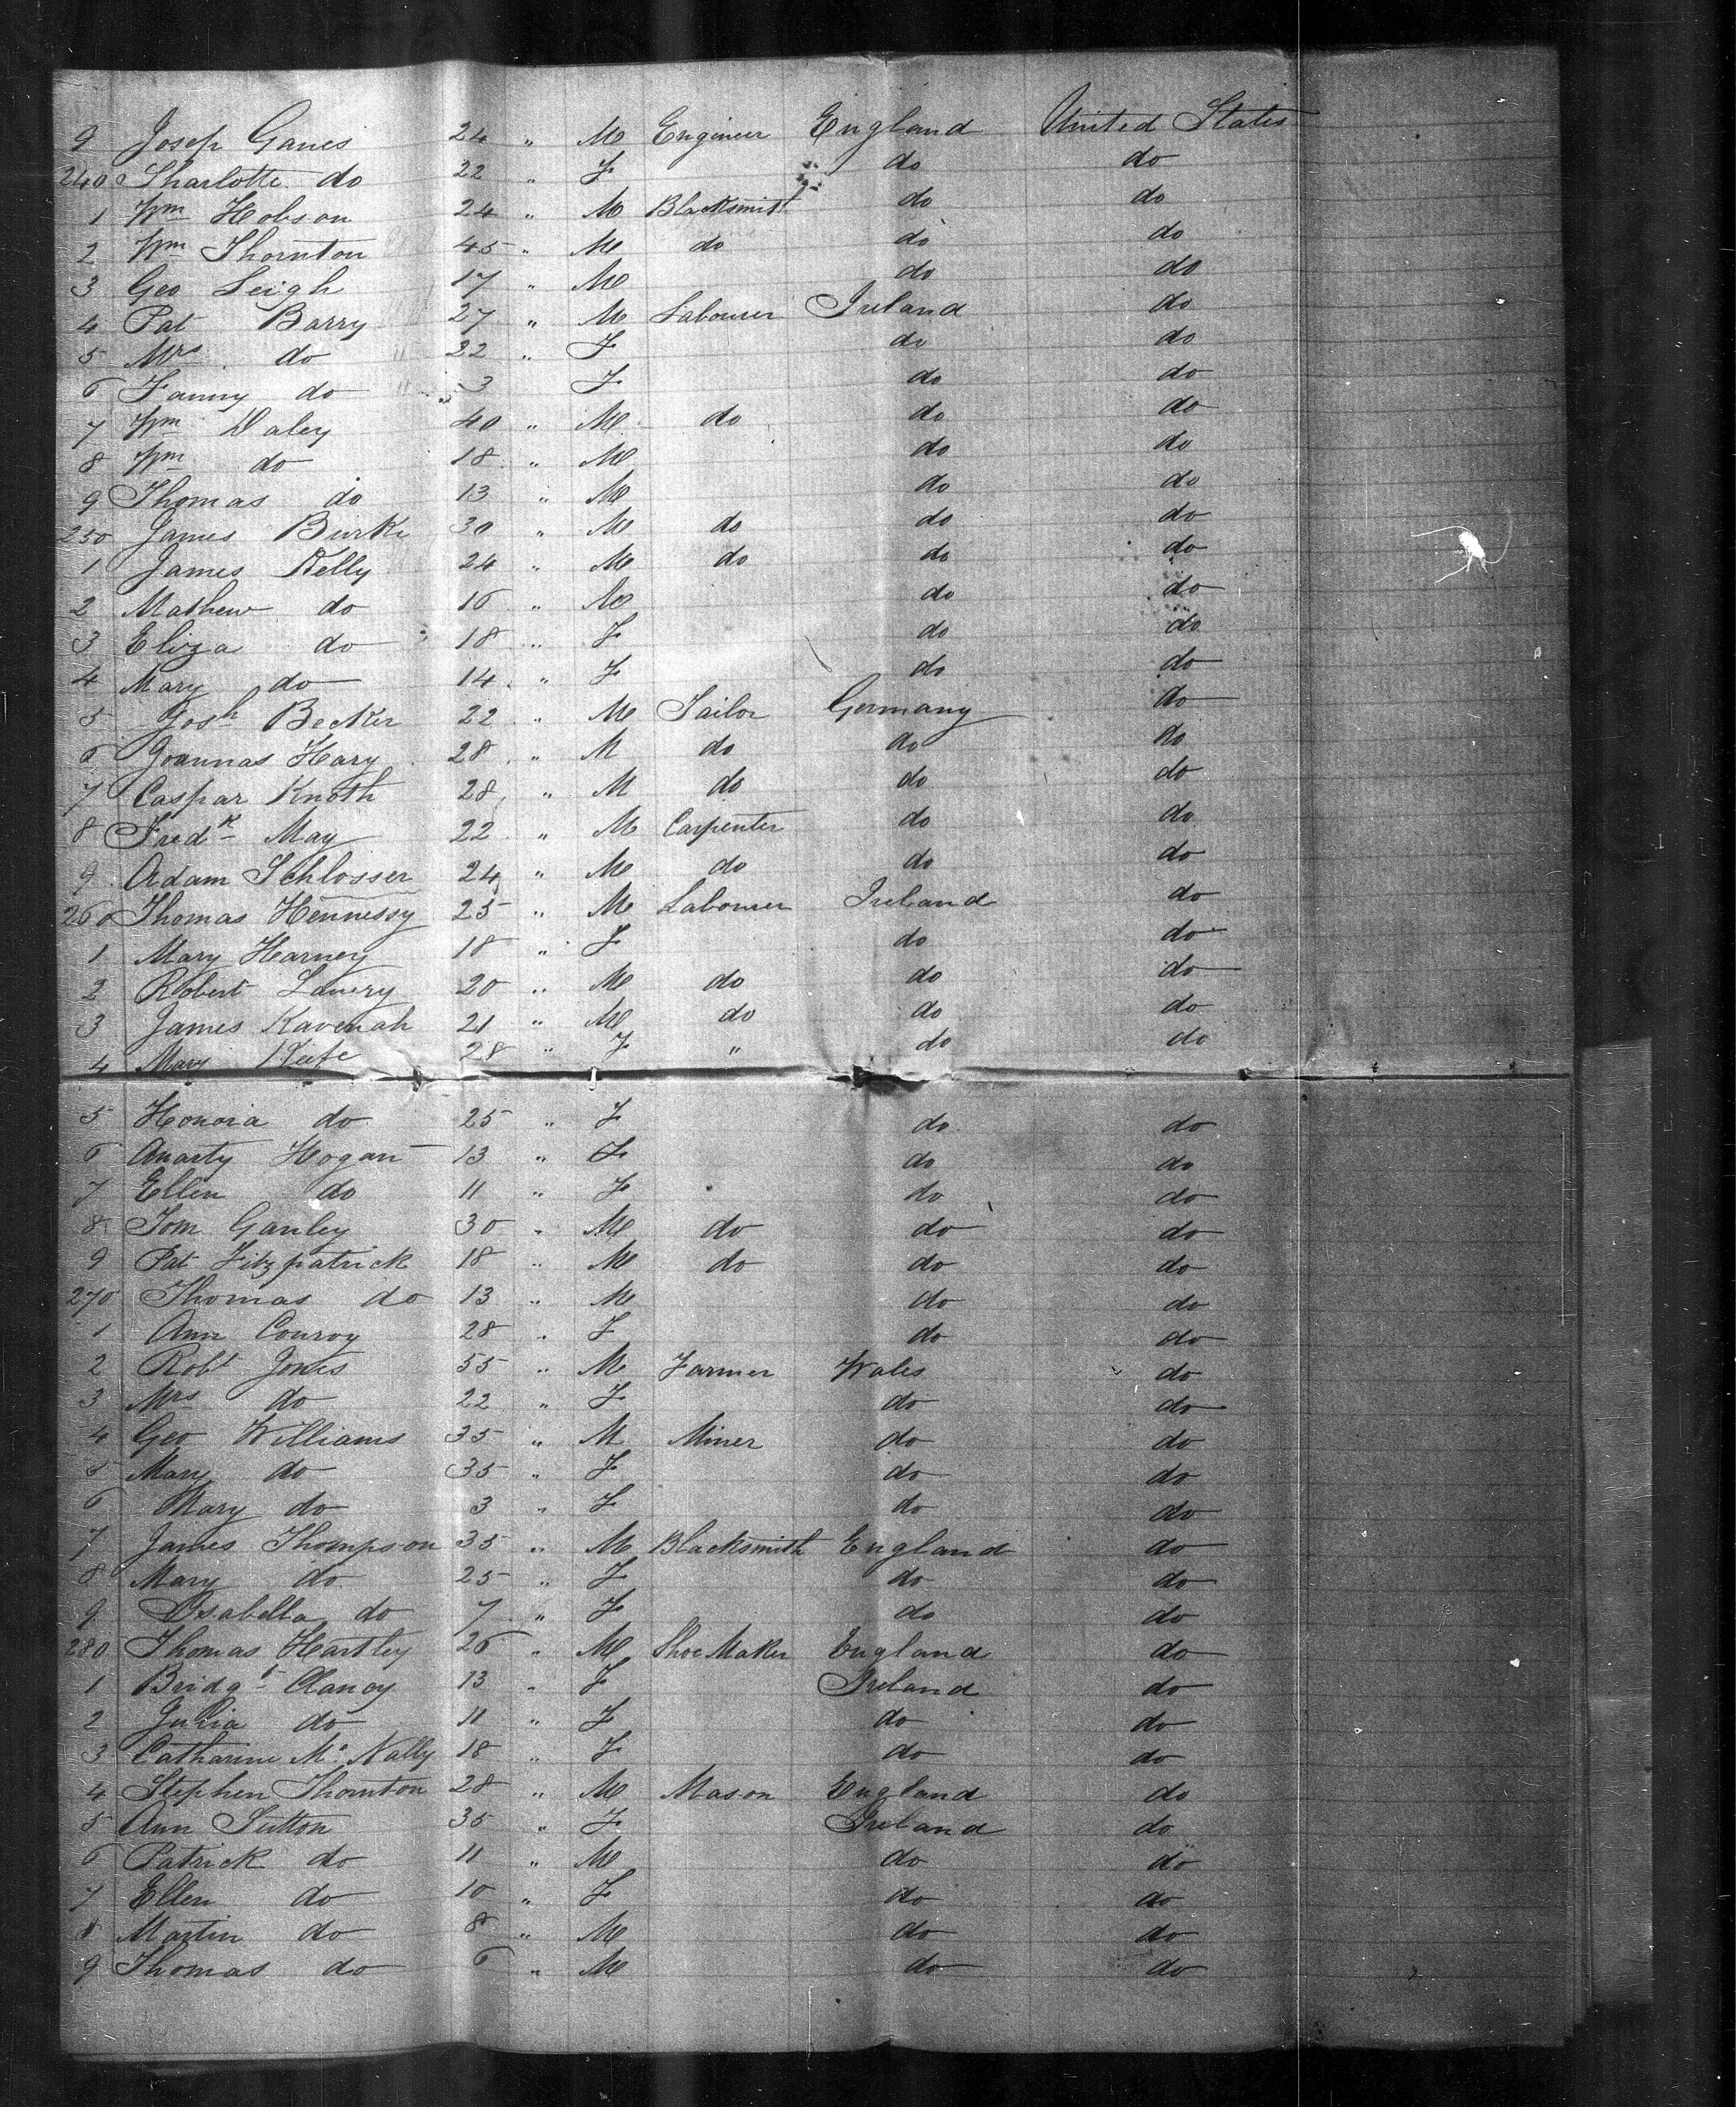 9 Josep Ganes 24 " M Engineer England United States
240 Charlotte do 22 " F do do
1 Wm Hobson 24 " M Blacksmith do do
2 Wm Thornton 45 " M do do do
3 Geo Leigh 17 " M do do
4 Pat Barry 27 " M Labourer Ireland do
5 Mrs do 22 " F do do
6 Fanny do " 3 F do do
7 Wm Daley 40 " M do do do
8 Wm do 18 " M do do
9 Thomas do 13 " M do do
250 James Burke 30 " M do do do
1 James Kelly 24 " M do do do
2 Mathew do 16 " M do do
3 Eliza do 18 " F do do
4 Mary do 14 " F do do
5 Josh Becker 22 " M Tailor Germany do
6 Joannas Hary 28 " M do do do
7 Caspar Knoth 28 " M do do do
8 Fredk May 22 " M Carpenter do do
9 Adam Schlosser 24 " M do do do
260 Thomas Hennessy 25 " M Labourer Ireland do
1 Mary Harney 18 " F do do
2 Robert Lavery 20 " M do do do
3 James Kavenah 21 " M do do do
4 Mary Keefe 28 " F " do do
5 Honora do 25 " F do do
6 Hogan 13 " F do do
7 Ellen do 11 " F do do
8 Tom Ganley 30 " M do do do
9 Pat Fitzpatrick 18 " M do do do
270 Thomas do 13 " M do do
1 Ann Conroy 28 " F do do
2 Robt Jones 55 " M Farmer Wales do
3 Mrs do 22 " F do do
4 Geo Williams 35 " M Miner do do
5 Mary do 35 " F do do
6 Mary do 3 " F do do
7 James Thompson 35 " M Blacksmith England do
8 Mary do 25 " F do do
9 Isabella do 7 " F do do
280 Thomas Hartley 26 " M Shoe Maker England do
1 Bridgt Clancy 13 " F Ireland do
2 Julia do 11 " F do do
3 Catharine Mc Nally 18 " F do do
4 Stephen Thornton 28 " M Mason England do
5 Ann Sutton 35 " F Ireland do
6 Patrick do 11 " M do do
7 Ellen do 10 " F do do
8 Martin do 8 " M do do
9 Thomas do 6 " M do do